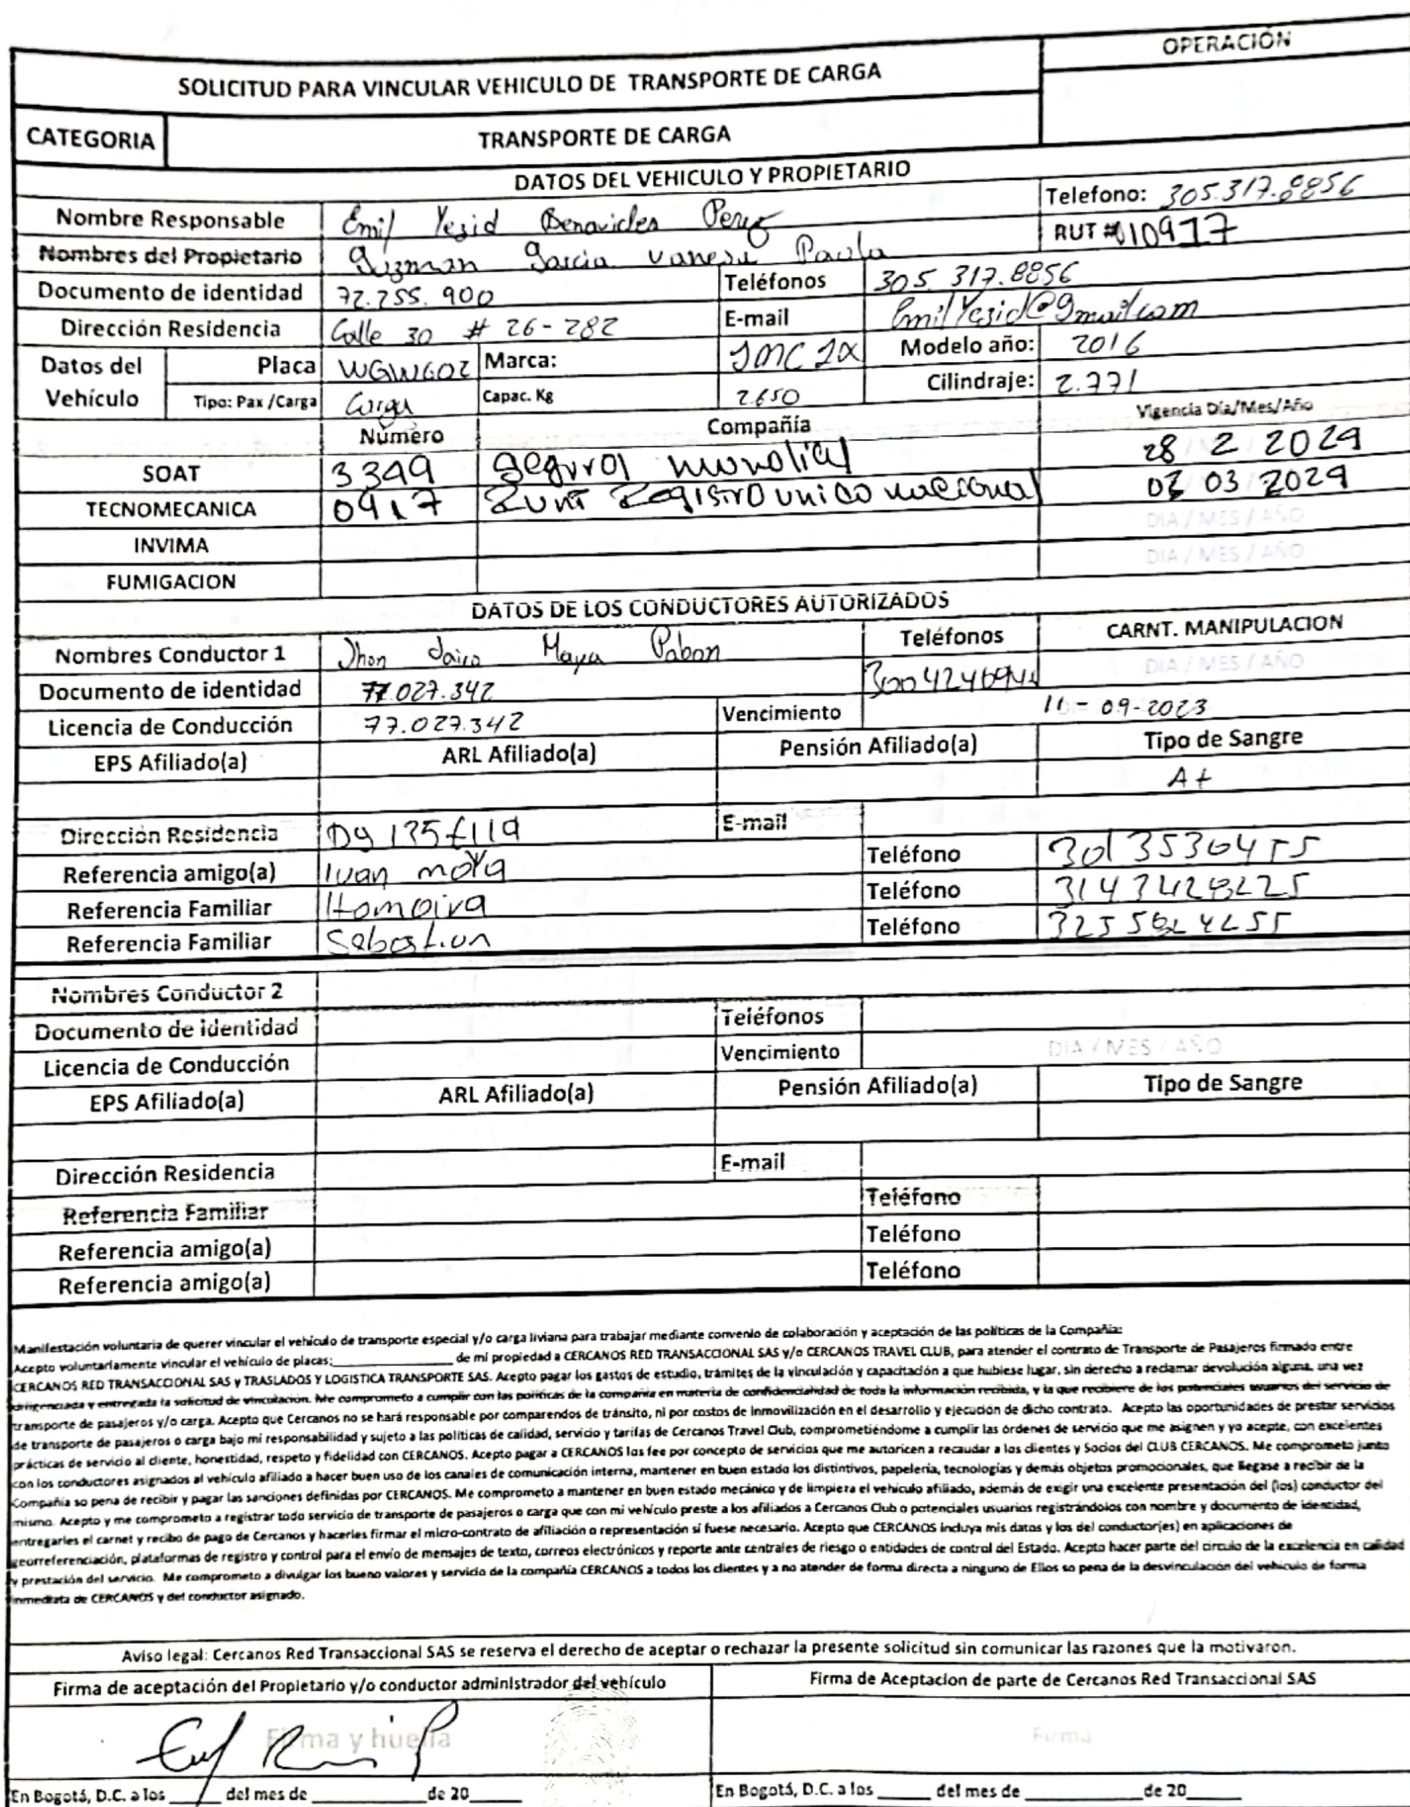 OPERACIÓN
SOLICITUD PARA VINCULAR VEHICULO DE TRANSPORTE DE CARGA
CATEGORIA TRANSPORTE DE CARGA
DATOS DEL VEHICULO Y PROPIETARIO
Nombre Responsable Emil Yesid Benavides Perez Telefono: 305.317.8856
Nombres del Propietario Guzman Garcia Vanesa Paola RUT # 10917
Documento de identidad 72.255.900 Teléfonos 305.317.8856
Dirección Residencia Calle 30 # 26-282 E-mail EmilYesid@gmail.com
Datos del Vehículo Placa Marca: JMC Modelo año: 2016
Tipo: Pax /Carga Carga Capac. Kg 2.650 Cilindraje: 2.771
Número Compañía Vigencia Día/Mes/Año
SOAT 3349 Segurol mundial 28 2 2029
TECNOMECANICA 0917 Runt Registro unico nacional 03 2029
INVIMA DIA / MES / AÑO
FUMIGACION DIA / MES / AÑO
DATOS DE LOS CONDUCTORES AUTORIZADOS
Nombres Conductor 1 Jhon Jairo Maya Pabon Teléfonos CARNT. MANIPULACION
Documento de identidad 77.027.342 DIA / MES / AÑO
Licencia de Conducción 77.027.342 Vencimiento 11-09-2023
EPS Afiliado(a) ARL Afiliado(a) Pensión Afiliado(a) Tipo de Sangre
A+
Dirección Residencia E-mail
Referencia amigo(a) Ivan moya Teléfono
Referencia Familiar Teléfono
Referencia Familiar Sebastian Teléfono
Nombres Conductor 2
Documento de identidad Teléfonos
Licencia de Conducción Vencimiento DIA / MES / AÑO
EPS Afiliado(a) ARL Afiliado(a) Pensión Afiliado(a) Tipo de Sangre
Dirección Residencia E-mail
Referencia Familiar Teléfono
Referencia amigo(a) Teléfono
Referencia amigo(a) Teléfono
Manifestación voluntaria de querer vincular el vehículo de transporte especial y/o carga liviana para trabajar mediante convenio de colaboración y aceptación de las políticas de la Compañía:
Acepto voluntariamente vincular el vehículo de placas:____________ de mi propiedad a CERCANOS RED TRANSACCIONAL SAS y/o CERCANOS TRAVEL CLUB, para atender el contrato de Transporte de Pasajeros firmado entre
CERCANOS RED TRANSACCIONAL SAS y TRASLADOS Y LOGISTICA TRANSPORTE SAS. Acepto pagar los gastos de estudio, trámites de la vinculación y capacitación a que hubiese lugar, sin derecho a reclamar devolución alguna, una vez
diligenciada y entregada la solicitud de vinculación. Me comprometo a cumplir con las políticas de la compañía en materia de confidencialidad de toda la información recibida, y la que recibiere de los potenciales usuarios del servicio de
transporte de pasajeros y/o carga. Acepto que Cercanos no se hará responsable por comparendos de tránsito, ni por costos de inmovilización en el desarrollo y ejecución de dicho contrato. Acepto las oportunidades de prestar servicios
de transporte de pasajeros o carga bajo mi responsabilidad y sujeto a las políticas de calidad, servicio y tarifas de Cercanos Travel Club, comprometiéndome a cumplir las órdenes de servicio que me asignen y yo acepte, con excelentes
prácticas de servicio al cliente, honestidad, respeto y fidelidad con CERCANOS. Acepto pagar a CERCANOS los fee por concepto de servicios que me autoricen a recaudar a los clientes y Socios del CLUB CERCANOS. Me comprometo junto
con los conductores asignados al vehículo afiliado a hacer buen uso de los canales de comunicación interna, mantener en buen estado los distintivos, papelería, tecnologías y demás objetos promocionales, que llegase a recibir de la
Compañía so pena de recibir y pagar las sanciones definidas por CERCANOS. Me comprometo a mantener en buen estado mecánico y de limpieza el vehículo afiliado, además de exigir una excelente presentación del (los) conductor del
mismo. Acepto y me comprometo a registrar todo servicio de transporte de pasajeros o carga que con mi vehículo preste a los afiliados a Cercanos Club o potenciales usuarios registrándolos con nombre y documento de identidad,
entregarles el carnet y recibo de pago de Cercanos y hacerles firmar el micro-contrato de afiliación o representación si fuese necesario. Acepto que CERCANOS incluya mis datos y los del conductor(es) en aplicaciones de
georreferenciación, plataformas de registro y control para el envío de mensajes de texto, correos electrónicos y reporte ante centrales de riesgo o entidades de control del Estado. Acepto hacer parte del circulo de la excelencia en calidad
y prestación del servicio. Me comprometo a divulgar los bueno valores y servicio de la compañía CERCANOS a todos los clientes y a no atender de forma directa a ninguno de Ellos so pena de la desvinculación del vehículo de forma
inmediata de CERCANOS y del conductor asignado.
Aviso legal: Cercanos Red Transaccional SAS se reserva el derecho de aceptar o rechazar la presente solicitud sin comunicar las razones que la motivaron.
Firma de aceptación del Propietario y/o conductor administrador del vehículo Firma de Aceptacion de parte de Cercanos Red Transaccional SAS
Firma y huella Firma
En Bogotá, D.C. a los _____ del mes de __________ de 20_____ En Bogotá, D.C. a los _____ del mes de __________ de 20_____